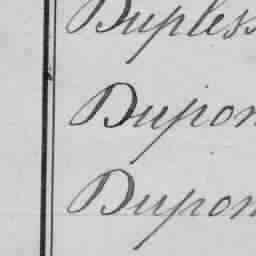 Dupless
Dupon
Dupon